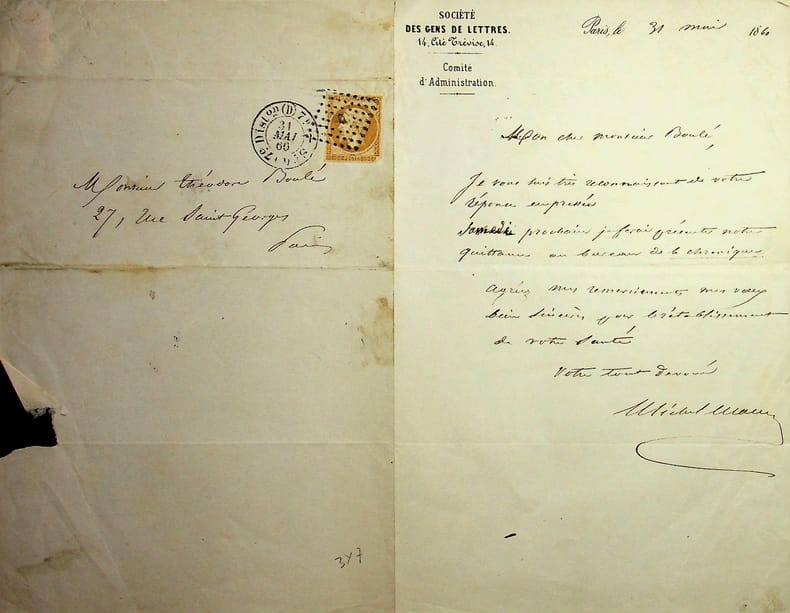 7e Diston (D) 7e
31
MAI
66
Monsieur Théodore Boulé
27, Rue Saint-Georges
Paris
347
SOCIÉTÉ
DES GENS DE LETTRES.
14, Cité Trévise, 14.
Comité
d'Administration.
Paris, le 31 mai 186
Mon cher monsieur Boulé,
Je vous suis très reconnaissant de votre
réponse empressée
Samedi prochain je ferai présenter notre
quittance au bureau de la chronique
Agréez mes remerciements, mes vœux
bien sincères pour le rétablissement
de votre santé
Votre tout dévoué
Michel Masson